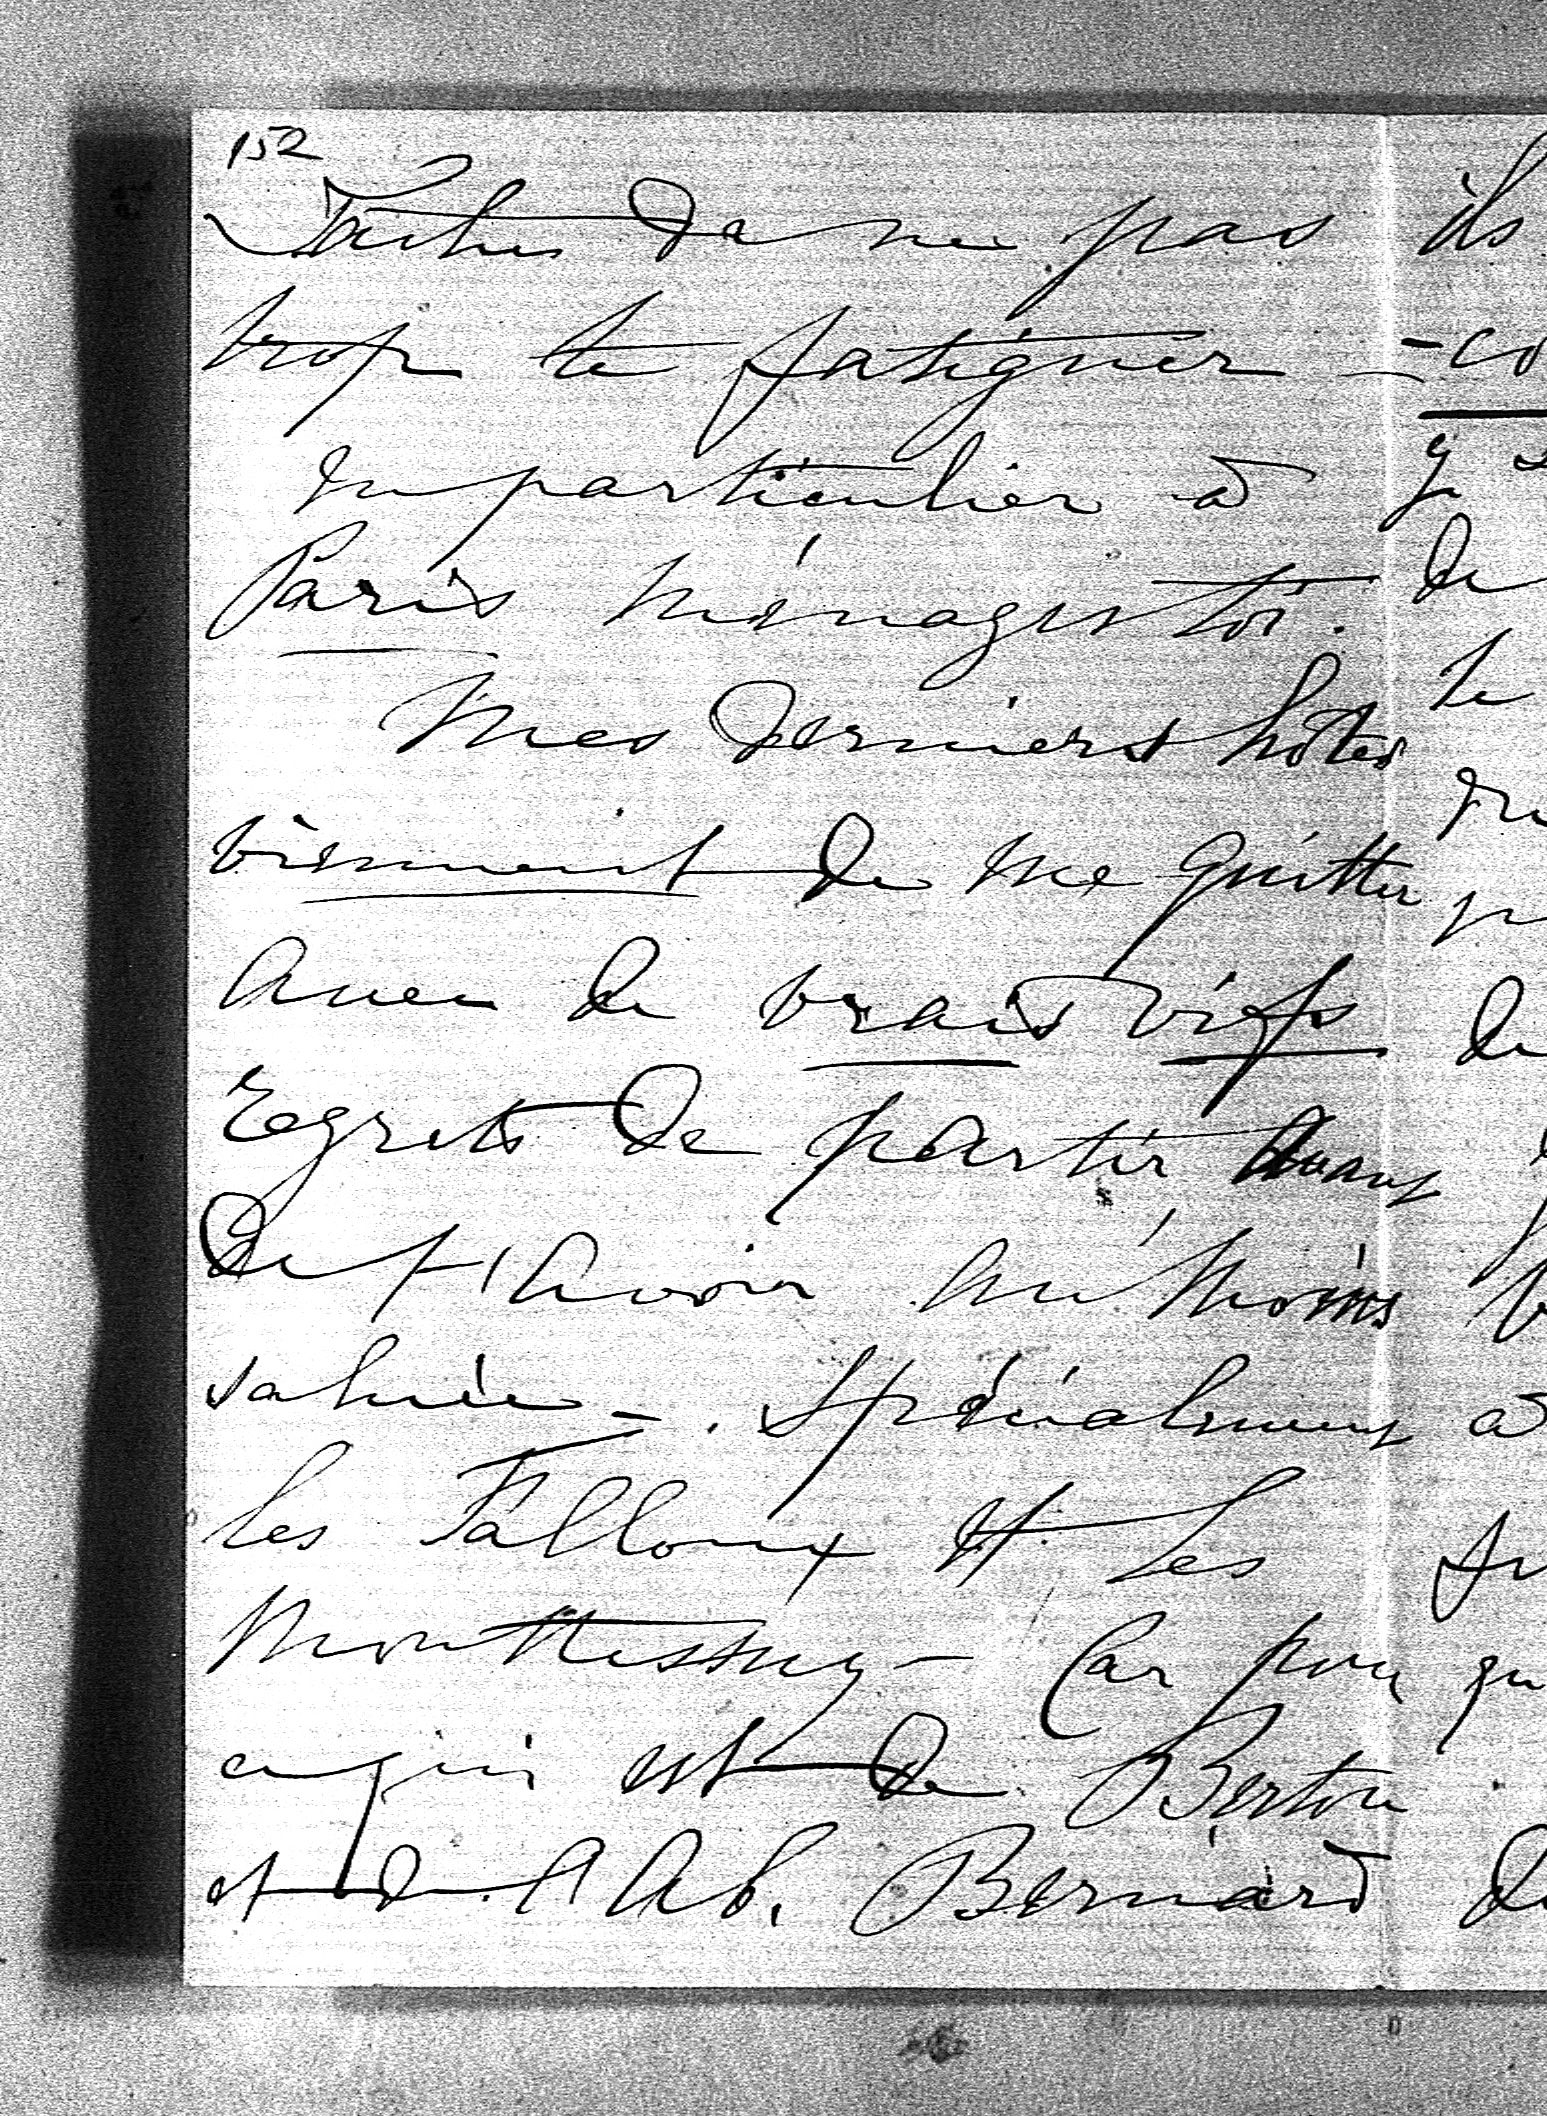 152
Taches de ne pas
trop te fatiguer —
En particulier à
Paris ménages toi.
Mes derniers hôtes
viennent de me quitter
avec de vrais vifs
regrets de partir avant
de t'avoir au moins
saluée —. Spécialement
les Falloux et les
Monttessuy — Car pour
ce qui est de Bertou
et de l'Ab. Bernard
ils
- co
y s
de
te
qu
p
de
à
qu
de